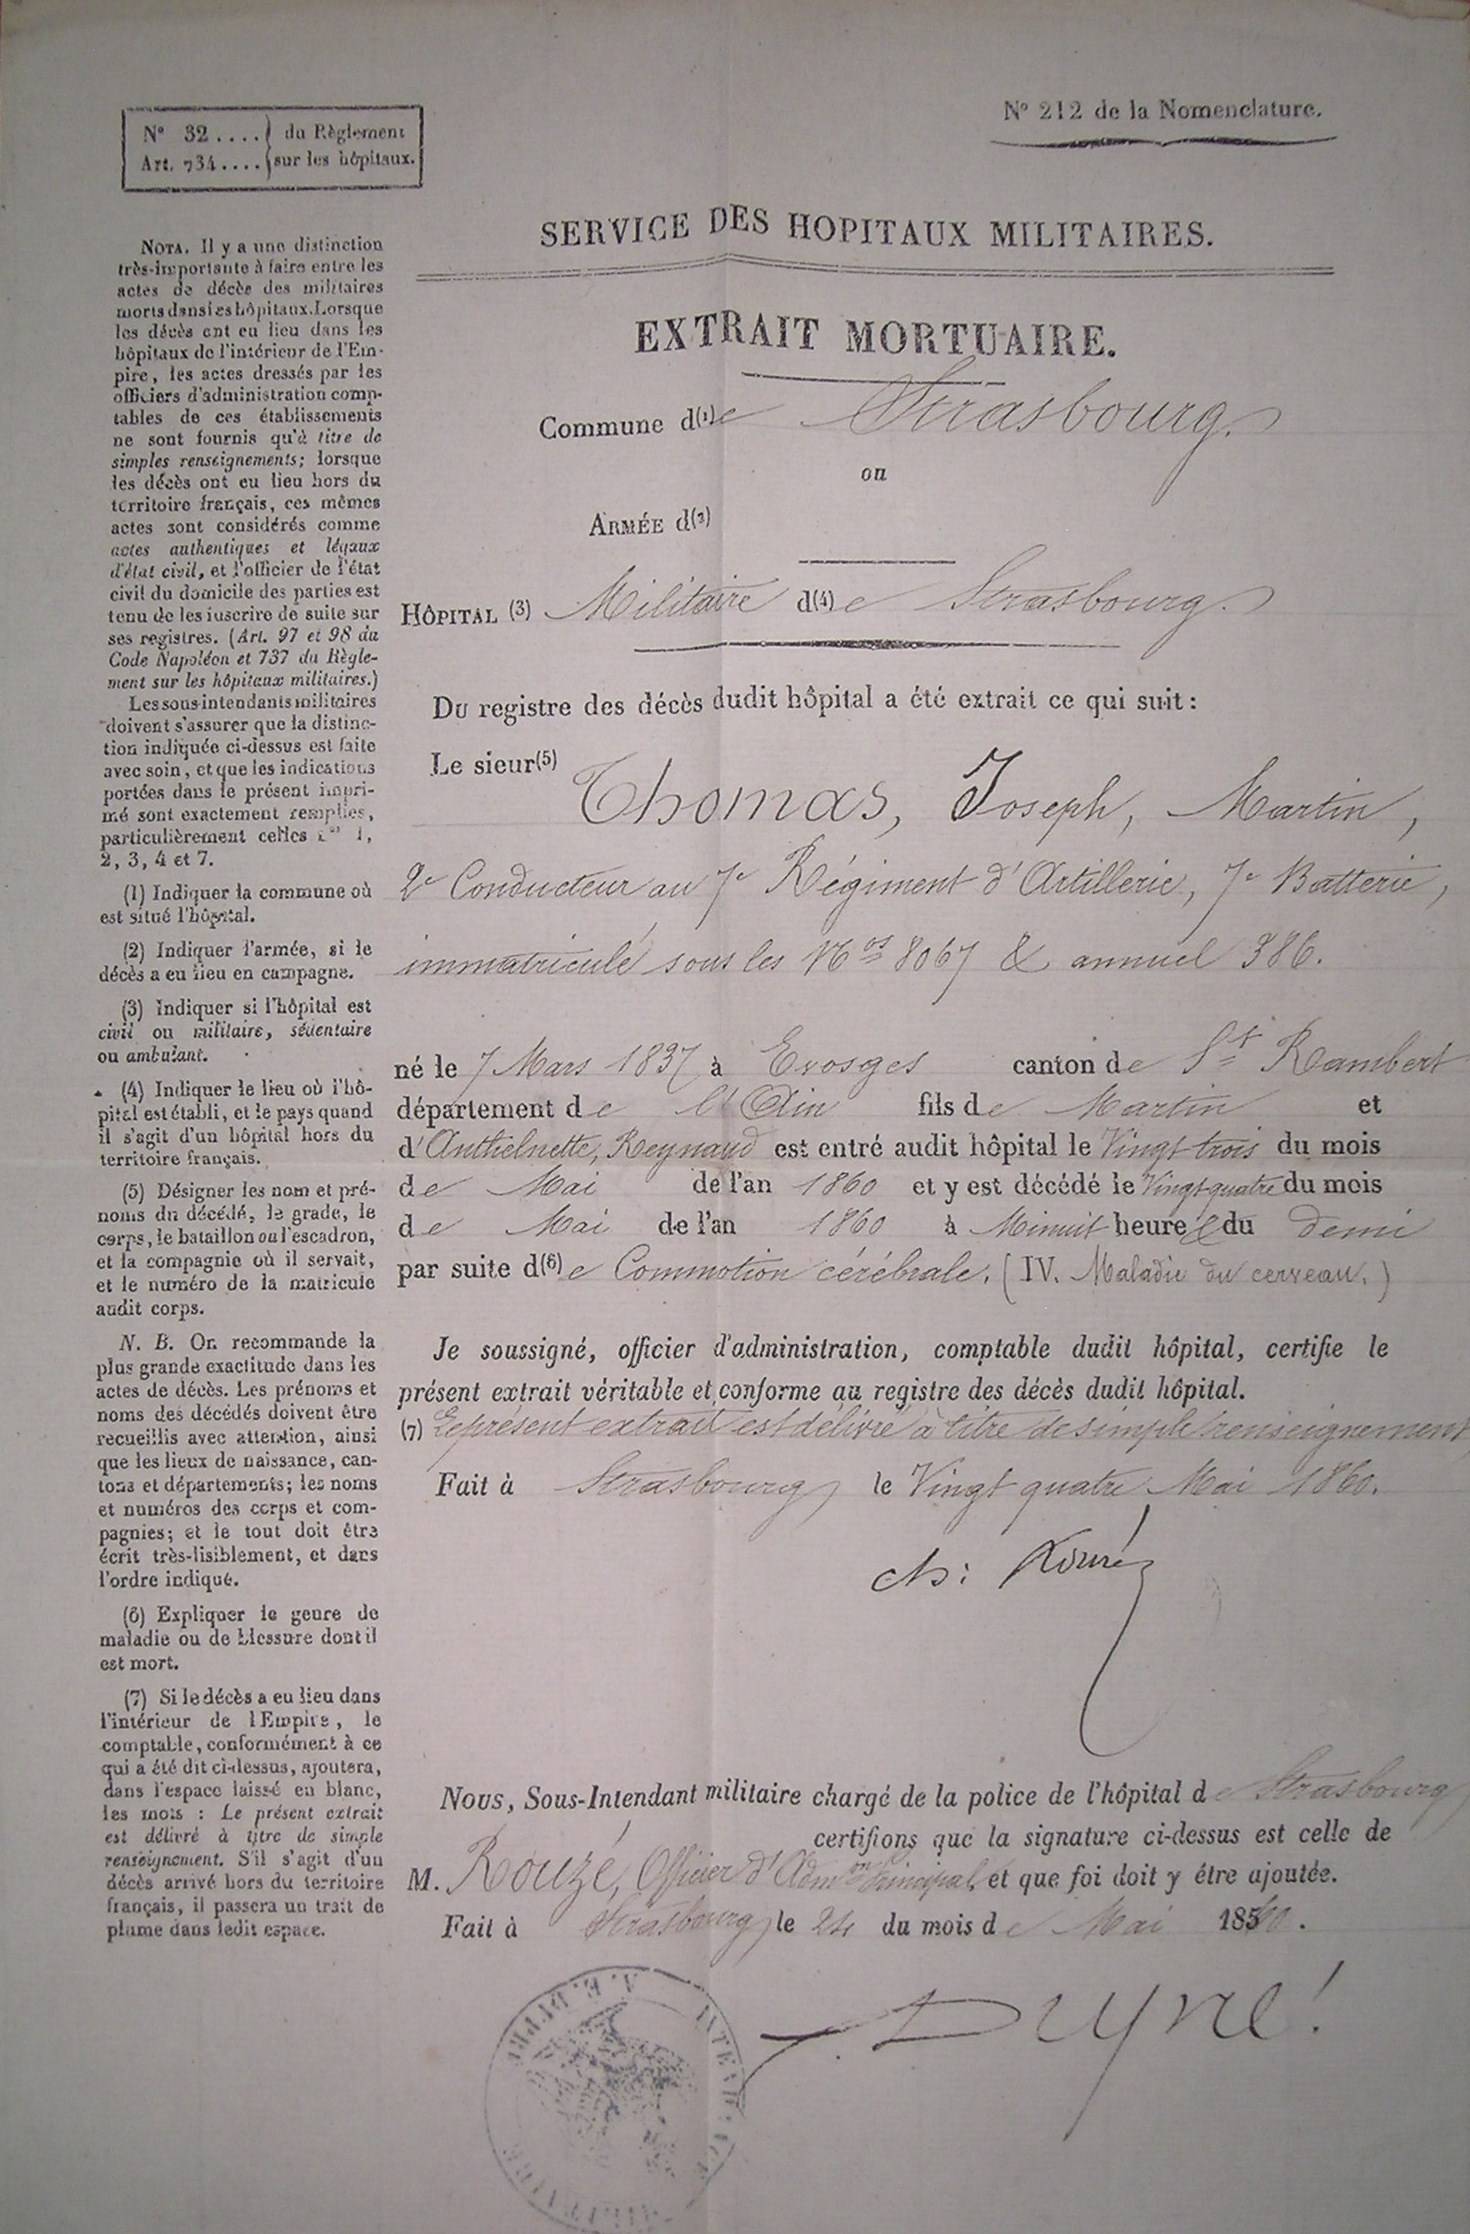 N° 32 .... du Règlement
Art. 734 .... sur les hôpitaux.
N° 212 de la Nomenclature.
SERVICE DES HOPITAUX MILITAIRES.
EXTRAIT MORTUAIRE.
Commune d(1)e Strasbourg.
ou
ARMÉE d(2)
HÔPITAL (3) Militaire d(4)e Strasbourg.
Du registre des décès dudit hôpital a été extrait ce qui suit :
Le sieur(5) Thomas, Joseph, Martin,
2e Conducteur au 7e Régiment d'Artillerie, 7e Batterie,
immatriculé sous les Nos 8067 & annuel 386.
né le 7 Mars 1837 à Evosges canton de St Rambert
département de l'Ain fils de Martin et
d'Anthelmette, Reynaud est entré audit hôpital le Vingt trois du mois
de Mai de l'an 1860 et y est décédé le Vingt quatre du mois
de Mai de l'an 1860 à Minuit heure & du demi
par suite d(6)e Commotion cérébrale. (IV. Maladie du cerveau.)
Je soussigné, officier d'administration, comptable dudit hôpital, certifie le
présent extrait véritable et conforme au registre des décès dudit hôpital.
(7) Le présent extrait est délivré à titre de simple renseignement
Fait à Strasbourg le Vingt quatre Mai 1860.
Ch: Rouzé
Nous, Sous-Intendant militaire chargé de la police de l'hôpital de Strasbourg
certifions que la signature ci-dessus est celle de
M. Rouzé, Officier d'Admon Principal, et que foi doit y être ajoutée.
Fait à Strasbourg le 24 du mois de Mai 1860.
NOTA. Il y a une distinction
très-importante à faire entre les
actes de décès des militaires
morts dans les hôpitaux. Lorsque
les décès ont eu lieu dans les
hôpitaux de l'intérieur de l'Em-
pire, les actes dressés par les
officiers d'administration comp-
tables de ces établissements
ne sont fournis qu'à titre de
simples renseignements; lorsque
les décès ont eu lieu hors du
territoire français, ces mêmes
actes sont considérés comme
actes authentiques et légaux
d'état civil, et l'officier de l'état
civil du domicile des parties est
tenu de les inscrire de suite sur
ses registres. (Art. 97 et 98 du
Code Napoléon et 737 du Règle-
ment sur les hôpitaux militaires.)
Les sous-intendants militaires
doivent s'assurer que la distinc-
tion indiquée ci-dessus est faite
avec soin, et que les indications
portées dans le présent impri-
mé sont exactement remplies,
particulièrement celles nos 1,
2, 3, 4 et 7.
(1) Indiquer la commune où
est situé l'hôpital.
(2) Indiquer l'armée, si le
décès a eu lieu en campagne.
(3) Indiquer si l'hôpital est
civil ou militaire, sédentaire
ou ambulant.
(4) Indiquer le lieu où l'hô-
pital est établi, et le pays quand
il s'agit d'un hôpital hors du
territoire français.
(5) Désigner les nom et pré-
noms du décédé, le grade, le
corps, le bataillon ou l'escadron,
et la compagnie où il servait,
et le numéro de la matricule
audit corps.
N. B. On recommande la
plus grande exactitude dans les
actes de décès. Les prénoms et
noms des décédés doivent être
recueillis avec attention, ainsi
que les lieux de naissance, can-
tons et départements; les noms
et numéros des corps et com-
pagnies; et le tout doit être
écrit très-lisiblement, et dans
l'ordre indiqué.
(6) Expliquer le genre de
maladie ou de blessure dont il
est mort.
(7) Si le décès a eu lieu dans
l'intérieur de l'Empire, le
comptable, conformément à ce
qui a été dit ci-dessus, ajoutera,
dans l'espace laissé en blanc,
les mots : Le présent extrait
est délivré à titre de simple
renseignement. S'il s'agit d'un
décès arrivé hors du territoire
français, il passera un trait de
plume dans ledit espace.